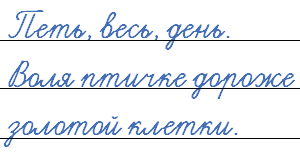 Петь, весь, день.
Воля птичке дороже
золотой клетки.